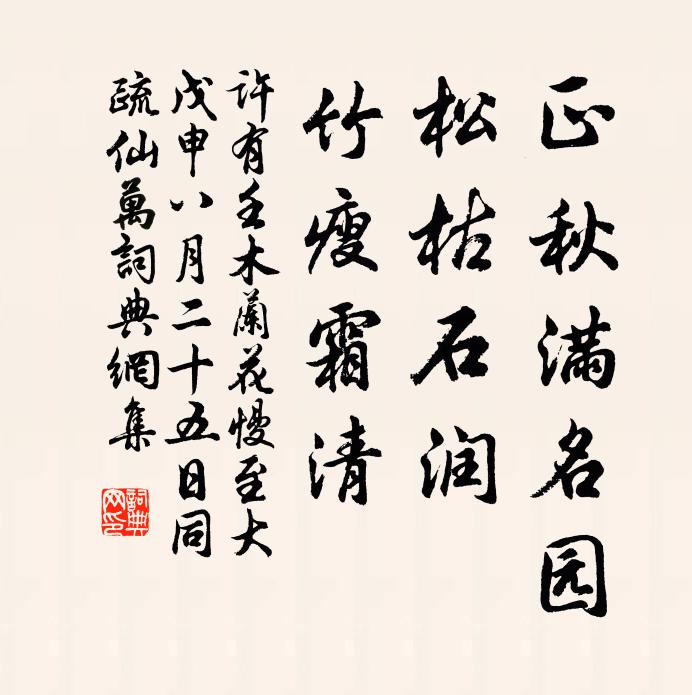 正秋满名园
松枯石润
竹瘦霜清
許有壬木蘭花慢至大
戊申八月二十五日同
疏仙萬詞典網集
詞典网印